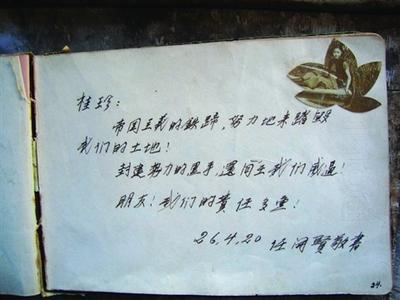 桂珍：
帝国主義的鉄蹄，努力地来踏毀
我们的土地！
封建势力的黑手，還向我们威逼！
朋友！我们的責任多重！
26.4.20 任賢敬書
24.